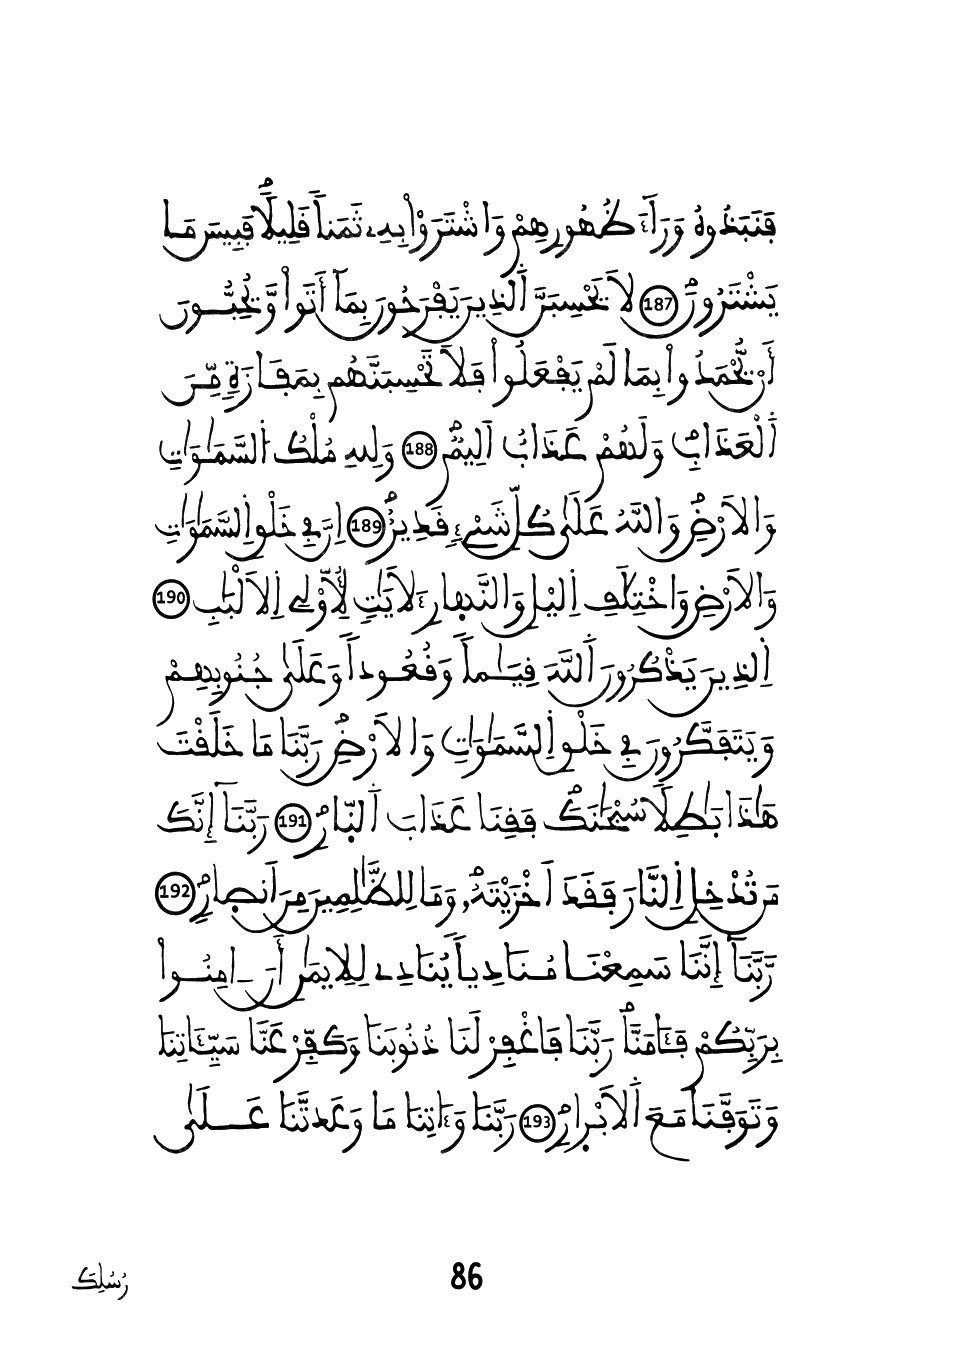 فَنَبَذُوهُ وَرَآءَ ظُهُورِهِمْ وَاشْتَرَوْاْ بِهِۦ ثَمَناٗ قَلِيلاٗۖ فَبِيسَ مَا
يَشْتَرُونَۖ 187 لَا تَحْسِبَنَّ اَ۬لذِينَ يَفْرَحُونَ بِمَآ أَتَواْ وَّيُحِبُّونَ
أَنْ يُّحْمَدُواْ بِمَا لَمْ يَفْعَلُواْ فَلَا تَحْسِبَنَّهُم بِمَفَازَةٖ مِّنَ
اَ۬لْعَذَابِۖ وَلَهُمْ عَذَابٌ اَلِيمٞۖ 188 وَلِلهِ مُلْكُ اُ۬لسَّمَٰوَٰتِ
وَالَارْضِۖ وَاللَّهُ عَلَىٰ كُلِّ شَےْءٖ قَدِيرٌۖ 189 اِنَّ فِے خَلْقِ اِ۬لسَّمَٰوَٰتِ
وَالَارْضِ وَاخْتِلَٰفِ اِ۬ليْلِ وَالنَّهارِ ءَلَايَٰتٖ لُِّأوْلِے اِ۬لَالْبَٰبِ 190
اِ۬لذِينَ يَذْكُرُونَ اَ۬للَّهَ قِيَٰماٗ وَقُعُوداٗ وَعَلَىٰ جُنُوبِهِمْ
وَيَتَفَكَّرُونَ فِے خَلْقِ اِ۬لسَّمَٰوَٰتِ وَالَارْضِۖ رَبَّنَا مَا خَلَقْتَ
هَٰذَا بَٰطِلاٗ سُبْحَٰنَكَۖ فَقِنَا عَذَابَ اَ۬لنّ۪ارِۖ 191 رَبَّنَآ إِنَّكَ
مَن تُدْخِلِ اِ۬لنَّارَ فَقَدَ اَخْزَيْتَهُۥۖ وَمَا لِلظَّٰلِمِينَ مِنَ اَنص۪ارٖۖ 192
رَّبَّنَآ إِنَّنَا سَمِعْنَا مُنَادِياٗ يُنَادِے لِلِايمَٰنِ أَنَ اٰمِنُواْ
بِرَبِّكُمْ فَـَٔامَنَّاۖ رَبَّنَا فَاغْفِرْ لَنَا ذُنُوبَنَا وَكَفِّرْ عَنَّا سَيِّـَٔاتِنَا
وَتَوَفَّنَا مَعَ اَ۬لَابْر۪ارِۖ 193 رَبَّنَا وَءَاتِنَا مَا وَعَدتَّنَا عَلَىٰ
رُسُلِكَ
86